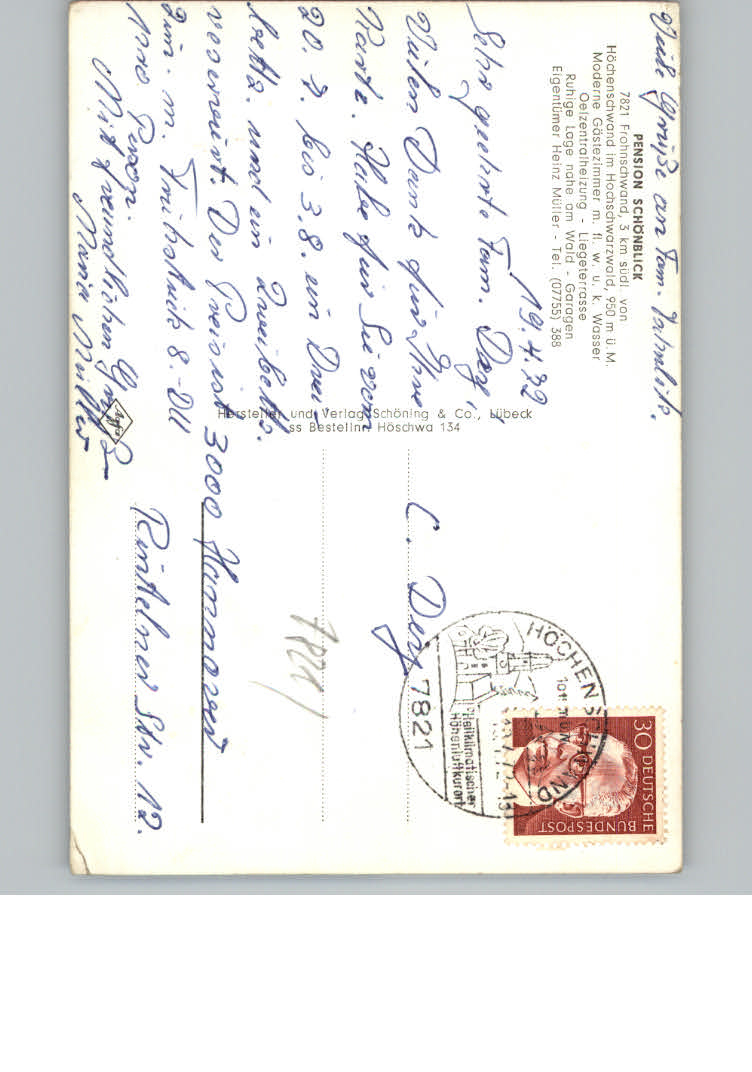 Viele Grüße an Fam.
PENSION SCHÖNBLICK
7821 Frohnschwand, 3 km südl. von
Höchenschwand im Hochschwarzwald, 950 m ü. M.
Moderne Gästezimmer m. fl. w. u. k. Wasser
Oelzentralheizung - Liegeterrasse
Ruhige Lage nahe am Wald - Garagen
Eigentümer Heinz Müller - Tel. (07755) 388
19.4.72
Sehr geehrte Fam. Derz,
Vielen Dank für Ihre
Karte. Habe für Sie vom
20. 7. bis 3.8. ein Drei-
bettz. und ein Zweibettz.
reserviert. Der Preis ist
zum. m. Frühstück 8.- DM
pro Person.
Mit freundlichen Grüßen
Maria Müller
Hersteller und Verlag Schöning & Co., Lübeck
ss Bestellnr. Höschwa 134
C. Derz
3000 Hannover
Rintelner Str. 12.
7821
HÖCHENSCHWAND
7821
Heilklimatischer
Höhenluftkurort
30 DEUTSCHE
BUNDESPOST